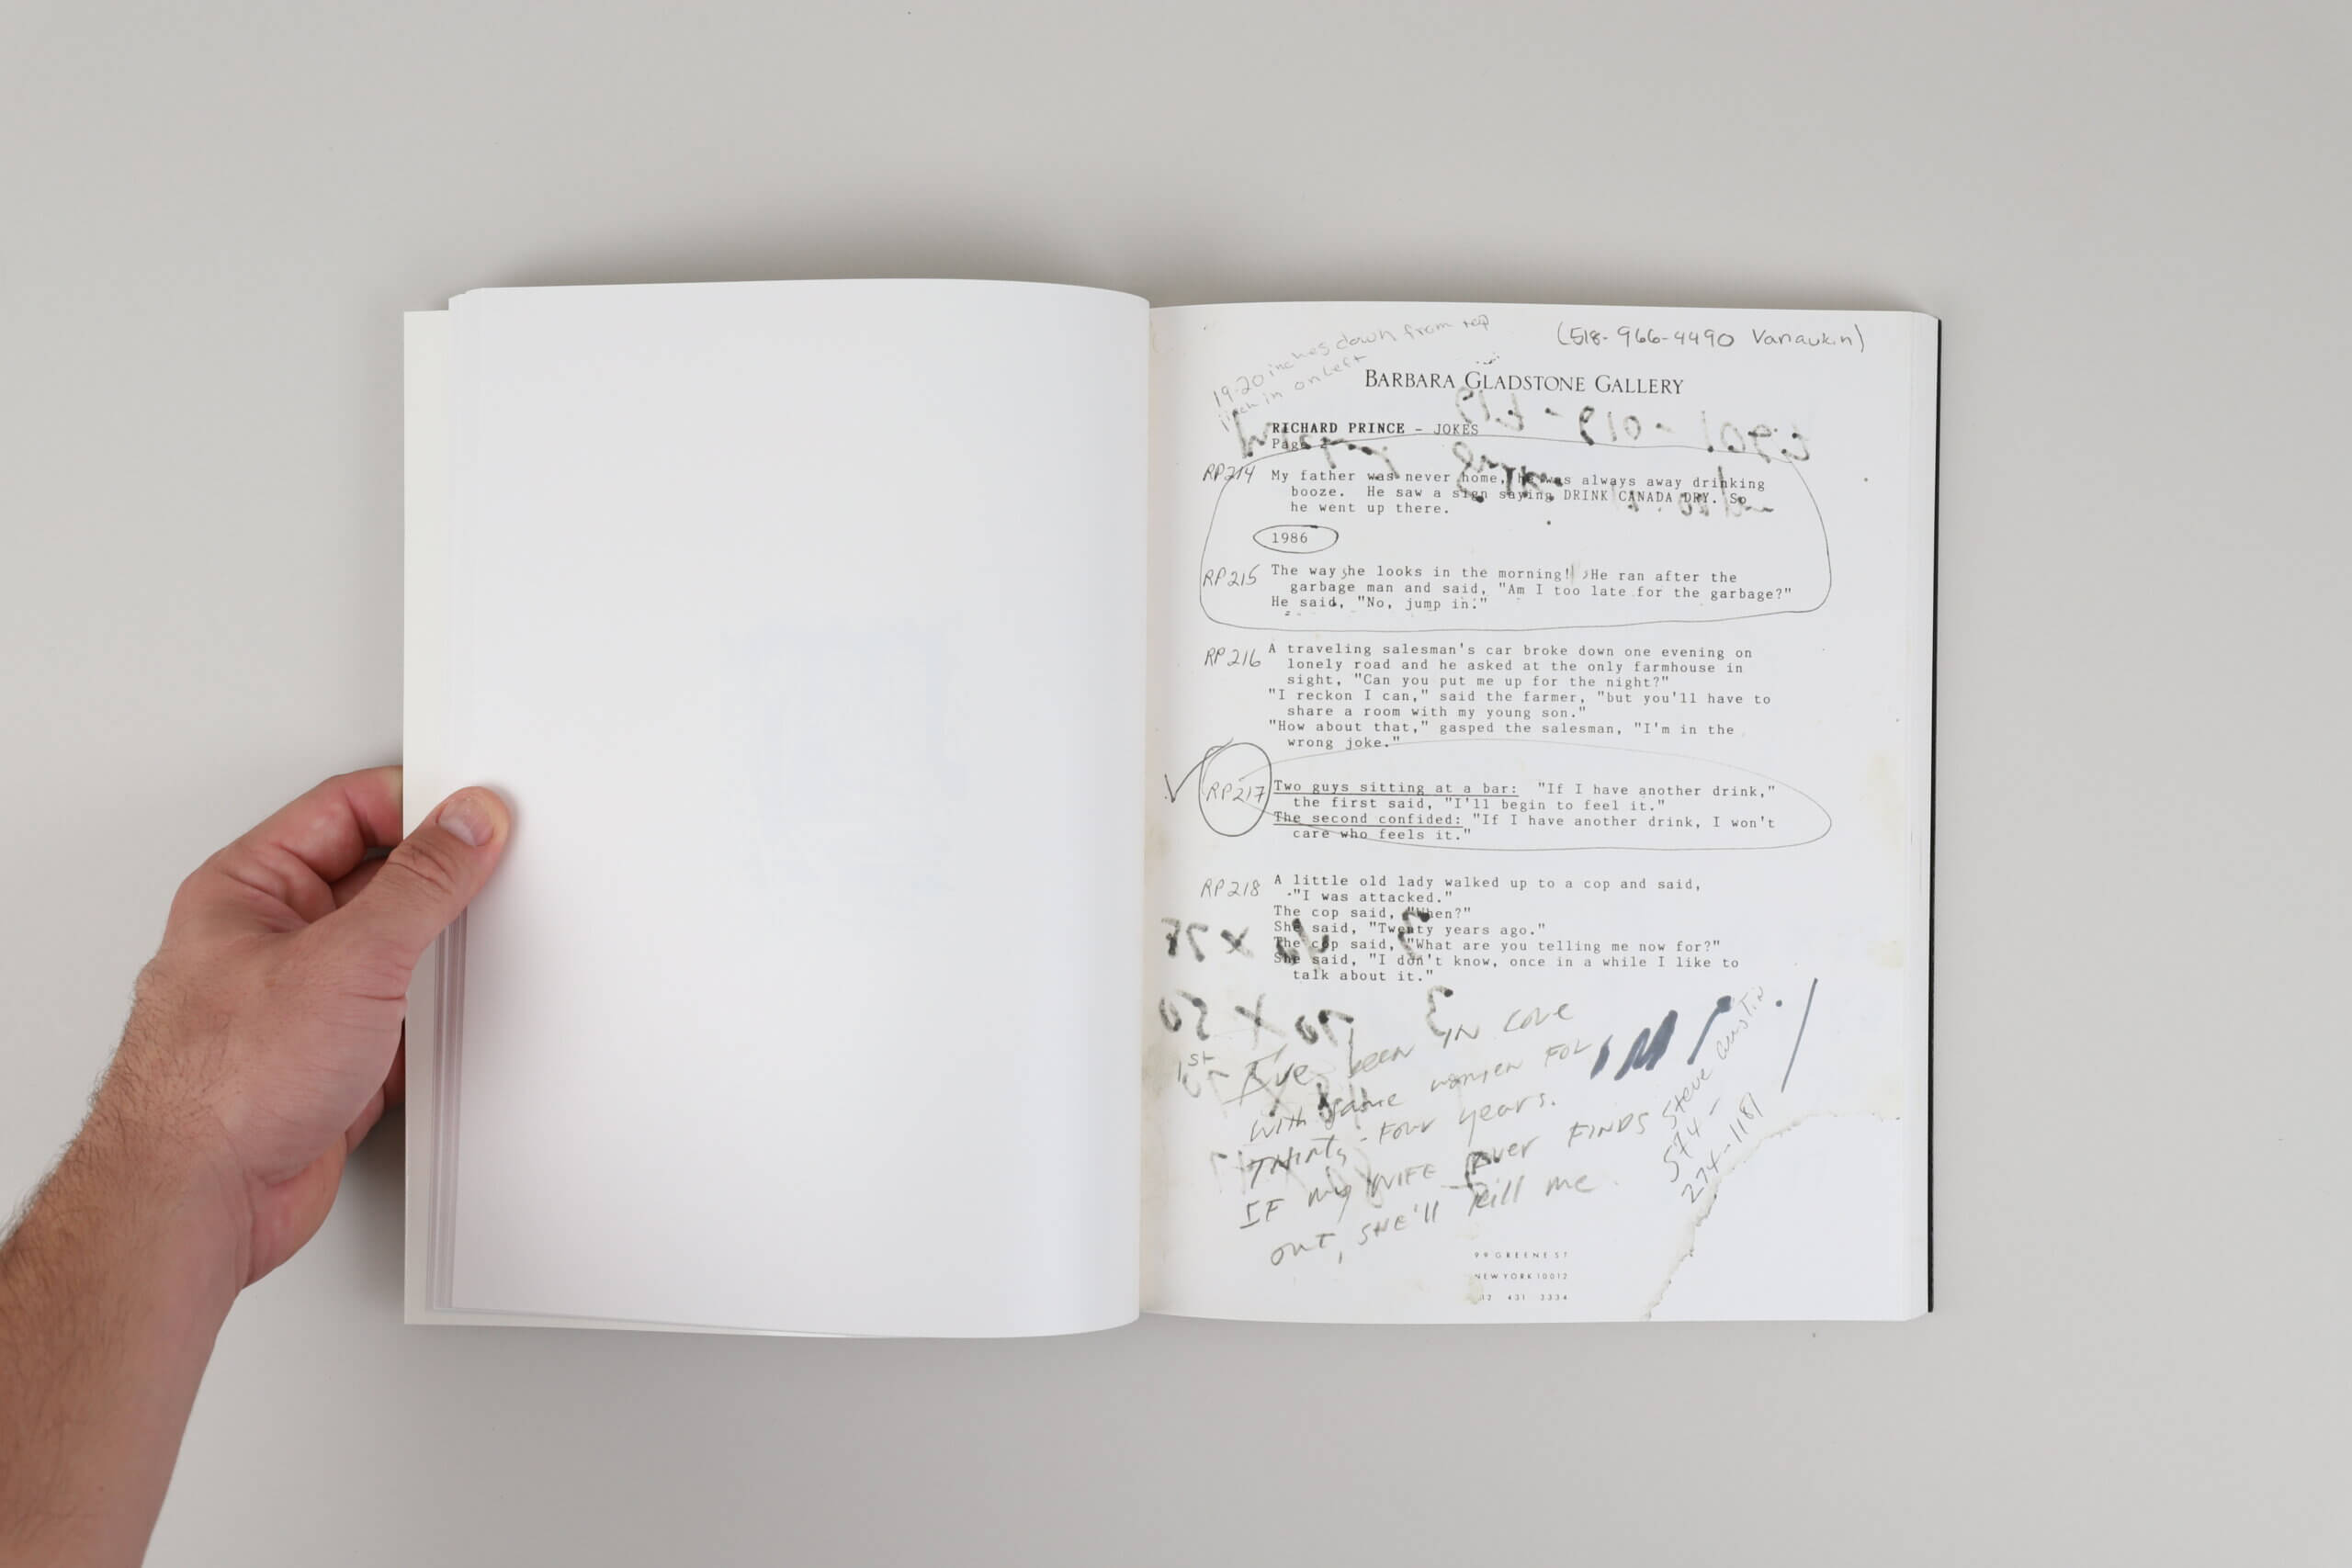 19-20 inches down from top
1 inch in on left
(518-966-4490 Vanaukin)
BARBARA GLADSTONE GALLERY
RICHARD PRINCE - JOKES
Page 2
RP214 My father was never home, he was always away drinking
booze. He saw a sign saying DRINK CANADA DRY. So
he went up there.
1986
RP215 The way she looks in the morning! He ran after the
garbage man and said, "Am I too late for the garbage?"
He said, "No, jump in."
RP216 A traveling salesman's car broke down one evening on
lonely road and he asked at the only farmhouse in
sight, "Can you put me up for the night?"
"I reckon I can," said the farmer, "but you'll have to
share a room with my young son."
"How about that," gasped the salesman, "I'm in the
wrong joke."
RP217 Two guys sitting at a bar: "If I have another drink,"
the first said, "I'll begin to feel it."
The second confided: "If I have another drink, I won't
care who feels it."
RP218 A little old lady walked up to a cop and said,
"I was attacked."
The cop said, "When?"
She said, "Twenty years ago."
The cop said, "What are you telling me now for?"
She said, "I don't know, once in a while I like to
talk about it."
1st I've been IN LOVE
with same women FOR
THIRTY-FOUR years.
IF my WIFE ever FINDS
OUT, SHE'll kill me
Steve Austin
574-
274-1181
99 GREENE ST
NEW YORK 10012
12 431 3334